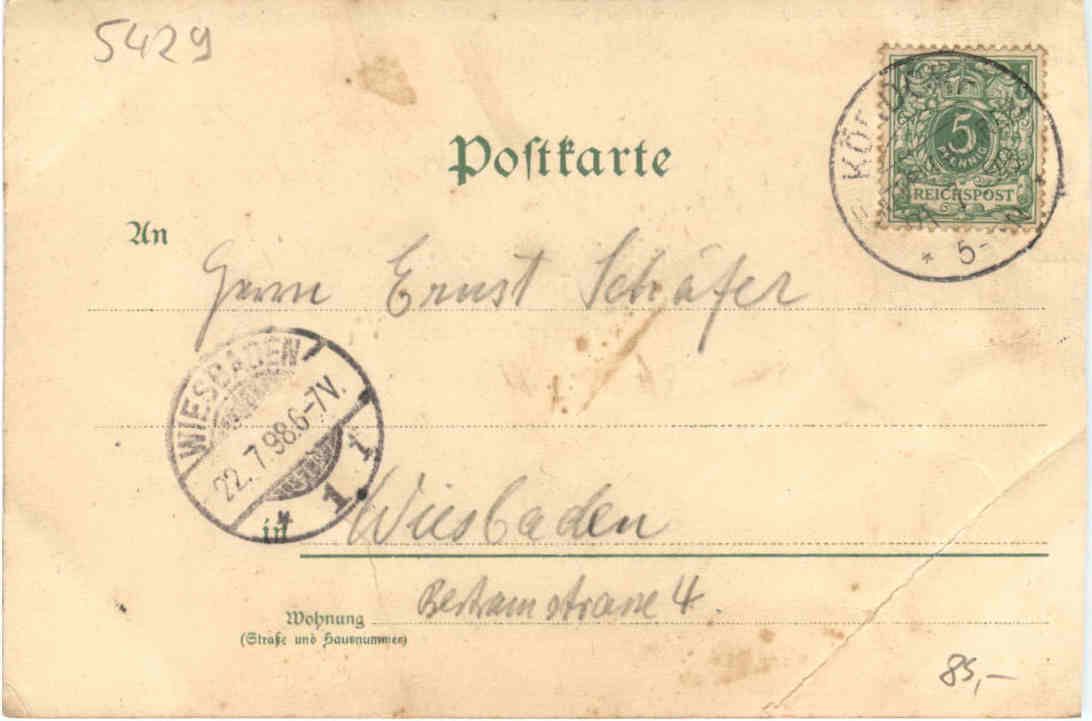 5429
5
PFENNIG
REICHSPOST
5-
Postkarte
An
Herrn Ernst Schäfer
WIESBADEN
22.7.98.6-7V.
* 1. 1
in Wiesbaden
Bertramstrasse 4.
Wohnung
(Straße und Hausnummer)
85,-